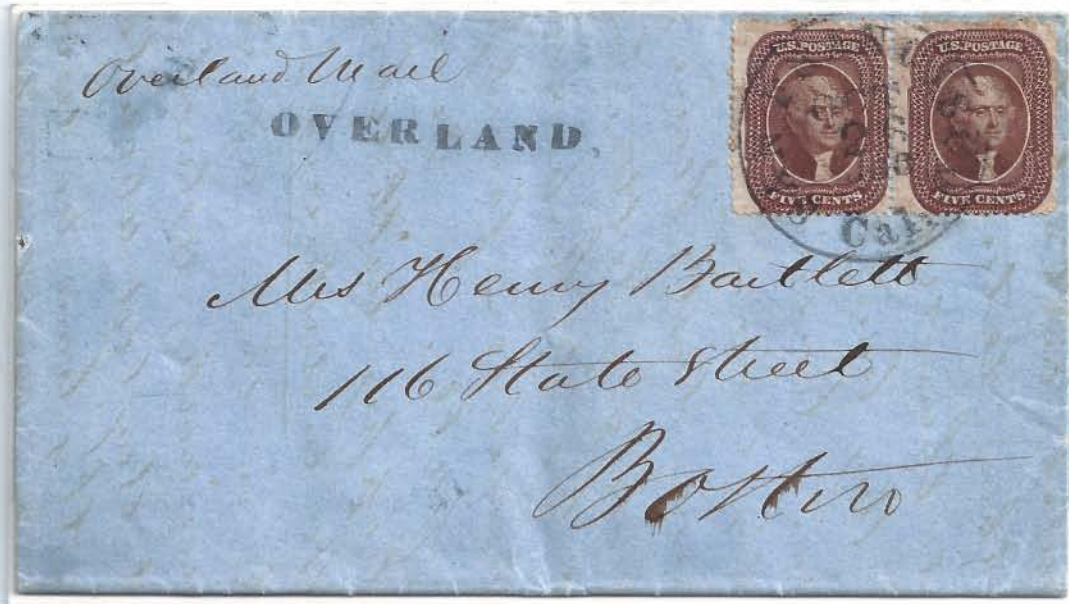 Overland Mail
OVERLAND,
U.S. POSTAGE U.S. POSTAGE
FIVE CENTS FIVE CENTS
Cal.
Mrs Henry Bartlett
116 State Street
Boston